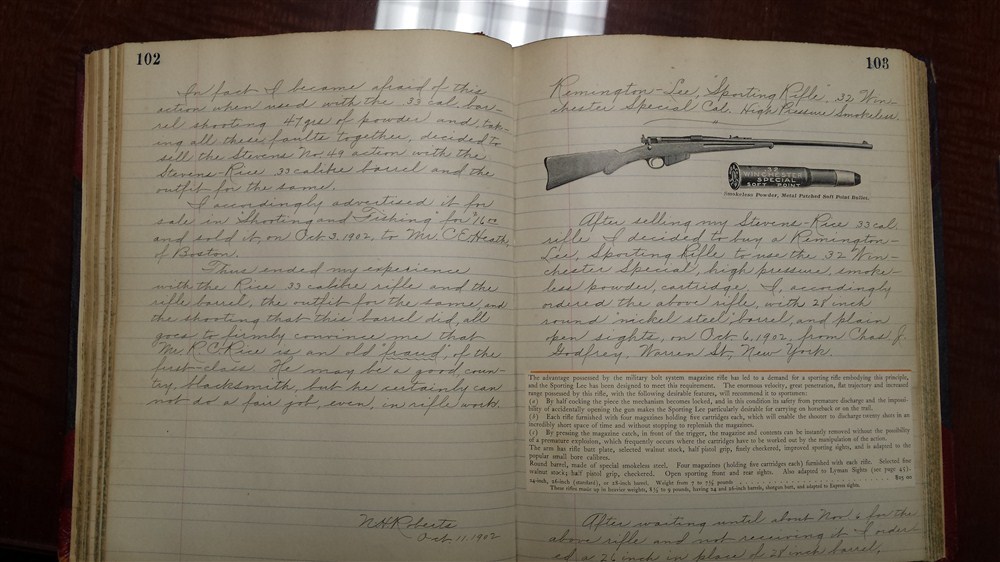 102
In fact I became afraid of this
action when used with the 33 cal. bar-
rel shooting 47 grs of powder and, tak-
ing all these faults together, decided to
sell the Stevens No. 49 action with the
Stevens-Rice 33 calibre barrel and the
outfit for the same.
I accordingly advertised it for
sale in "Shooting and Fishing" for $16.00
and sold it, on Oct 3, 1902, to Mr C.E. Heath,
of Boston.
Thus ended my experience
with the Rice 33 calibre rifle and the
rifle barrel, the outfit for the same, and
the shooting that this barrel did, all
goes to firmly convince me that
Mr R.C. Rice is an old fraud, of the
first-class. He may be a good, coun-
try, blacksmith, but he certainly can
not do a fair job, even, in rifle work.
N.H. Roberts
Oct. 11, 1902
103
Remington-Lee, "Sporting Rifle". 32 Win-
chester Special Cal. High Pressure Smokeless.
.32
WINCHESTER
SPECIAL
SOFT POINT
Smokeless Powder, Metal Patched Soft Point Bullet.
After selling my Stevens-Rice 33 cal.
rifle I decided to buy a Remington-
Lee, Sporting Rifle to use the 32 Win-
chester Special, high pressure, smoke-
less powder, cartridge. I, accordingly
ordered the above rifle, with 28 inch
round "nickel steel" barrel, and plain
open sights, on Oct. 6, 1902, from Chas. J.
Godfrey, Warren St, New York.
The advantage possessed by the military bolt system magazine rifle has led to a demand for a sporting rifle embodying this principle,
and the Sporting Lee has been designed to meet this requirement. The enormous velocity, great penetration, flat trajectory and increased
range possessed by this rifle, with the following desirable features, will recommend it to sportsmen:
(a) By half cocking the piece the mechanism becomes locked, and in this condition its safety from premature discharge and the impossi-
bility of accidentally opening the gun makes the Sporting Lee particularly desirable for carrying on horseback or on the trail.
(b) Each rifle furnished with four magazines holding five cartridges each, which will enable the shooter to discharge twenty shots in an
incredibly short space of time and without stopping to replenish the magazines.
(c) By pressing the magazine catch, in front of the trigger, the magazine and contents can be instantly removed without the possibility
of a premature explosion, which frequently occurs where the cartridges have to be worked out by the manipulation of the action.
The arm has rifle butt plate, selected walnut stock, half pistol grip, finely checkered, improved sporting sights, and is adapted to the
popular small bore calibres.
Round barrel, made of special smokeless steel. Four magazines (holding five cartridges each) furnished with each rifle. Selected fine
walnut stock; half pistol grip, checkered. Open sporting front and rear sights. Also adapted to Lyman Sights (see page 45).
24-inch, 26-inch (standard), or 28-inch barrel. Weight from 7 to 7½ pounds . . . . . $25 00
These rifles made up in heavier weights, 8½ to 9 pounds, having 24 and 26-inch barrels, shotgun butt, and adapted to Express sights.
After waiting until about Nov. 6 for the
above rifle and not receiving it I order-
ed a 26 inch in place of 28 inch barrel,